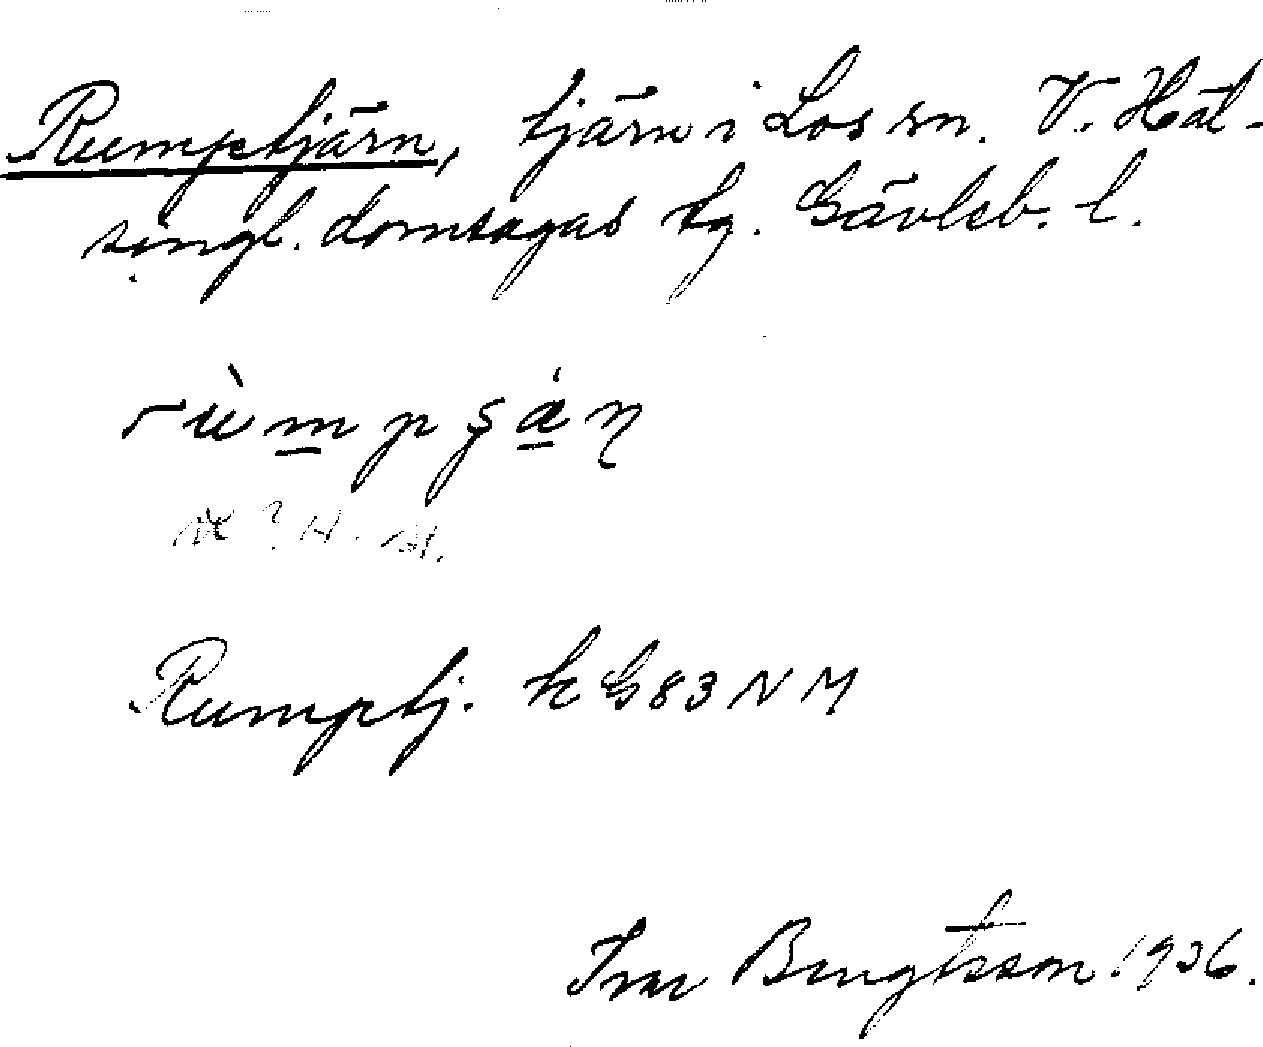 Rumptjärn, tjärn i Los sn. V. Häl-
singl. domsagas tg. Gävleb. l.
rùmpʂá̱ɳ
Rumptj. k G83 NM
Ivar Bengtsson 1936.